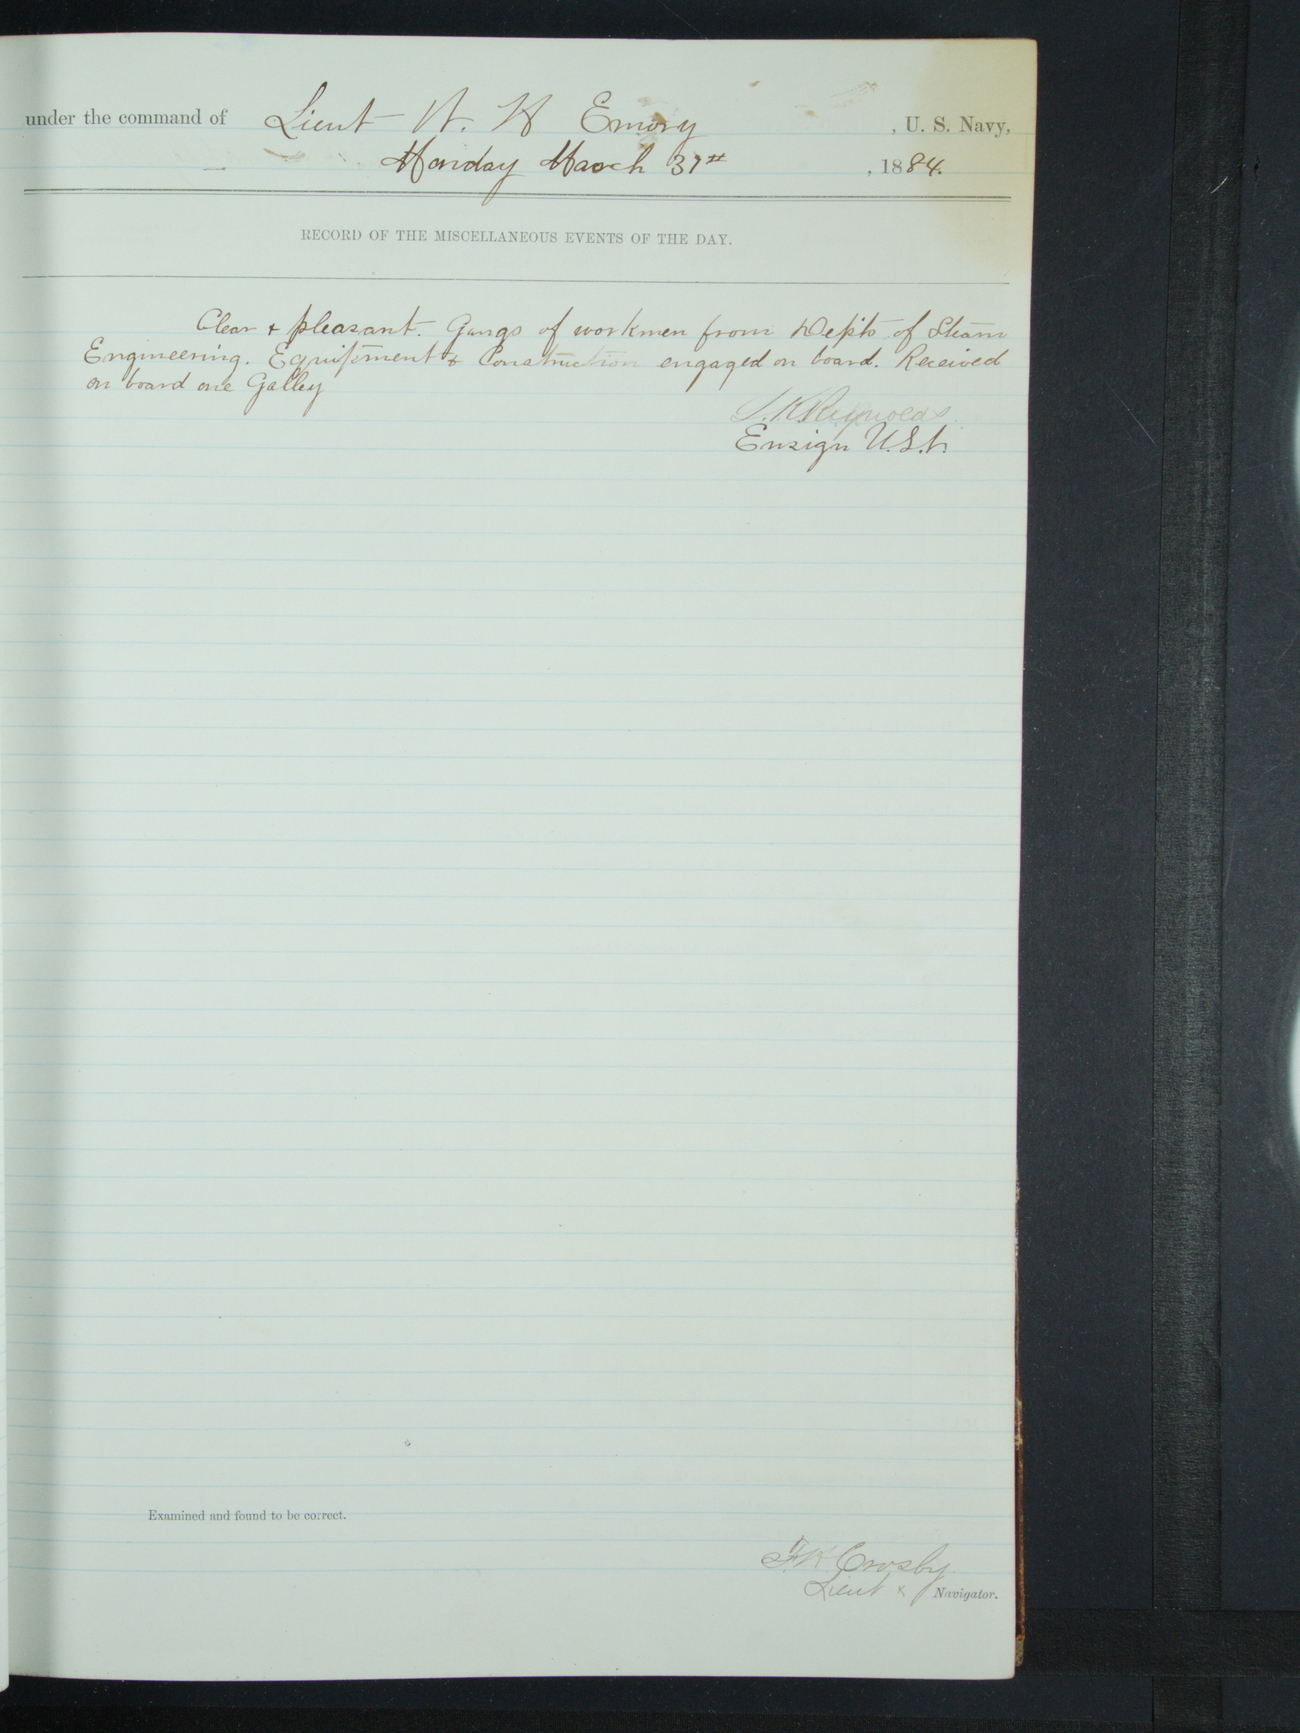 under the command of Lieut W. H Emory , U. S. Navy,
Monday March 31st , 1884.
RECORD OF THE MISCELLANEOUS EVENTS OF THE DAY.
Clear & pleasant. Gangs of workmen from Depts of Steam
Engineering. Equipment & Construction engaged on board. Received
on board one Galley
L. K Reynolds.
Ensign U.S.N.
Examined and found to be correct.
F. K. Crosby
Lieut & Navigator.